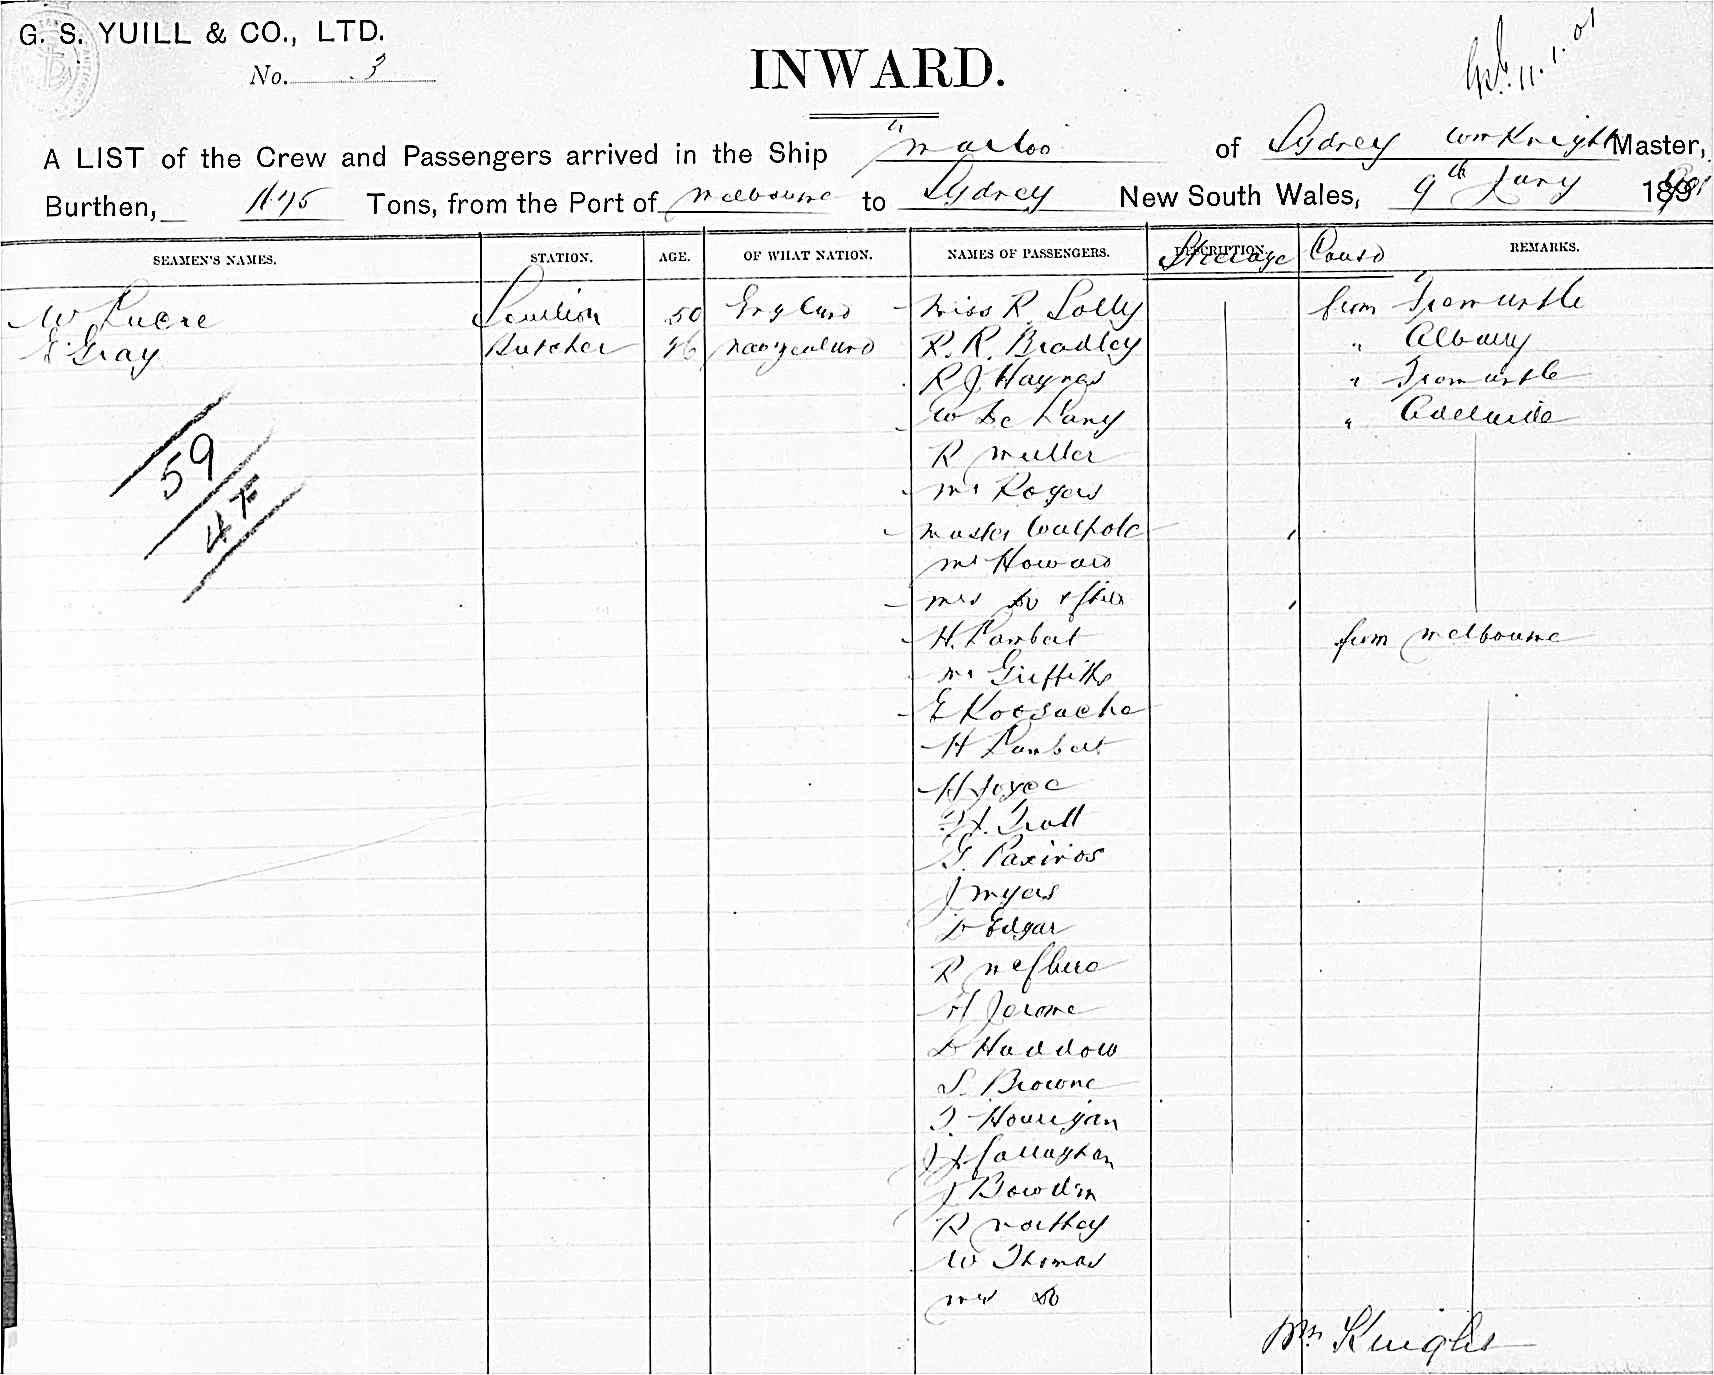 G. S. YUILL & CO., LTD.
No. 3
INWARD.
11.1.01
A LIST of the Crew and Passengers arrived in the Ship of Sydney Wm Knight Master,
Burthen, Tons, from the Port of Melbourne to Sydney New South Wales, 9th Jany
SEAMEN'S NAMES. STATION. AGE. OF WHAT NATION. NAMES OF PASSENGERS. DESCRIPTION. Steerage REMARKS.
W 50 England Miss R. Solly from Fremantle
Gray Butcher R. R. Bradley " Albany
R J Haynes " Fremantle
W " Adelaide
59 R Muller
Mr Rogers
4 Master Walpole
Mr Howard
Mrs Do
H. Lambert from Melbourne
Mr Griffiths
E
H Lambert
H Joyce
Trott
G. Paxinos
J Myers
D Edgar
R McClure
H Jerome
D Haddow
S. Browne
T. Hourigan
Callaghan
J Bowden
R Northey
W Thomas
Mrs Do
Wm Knight